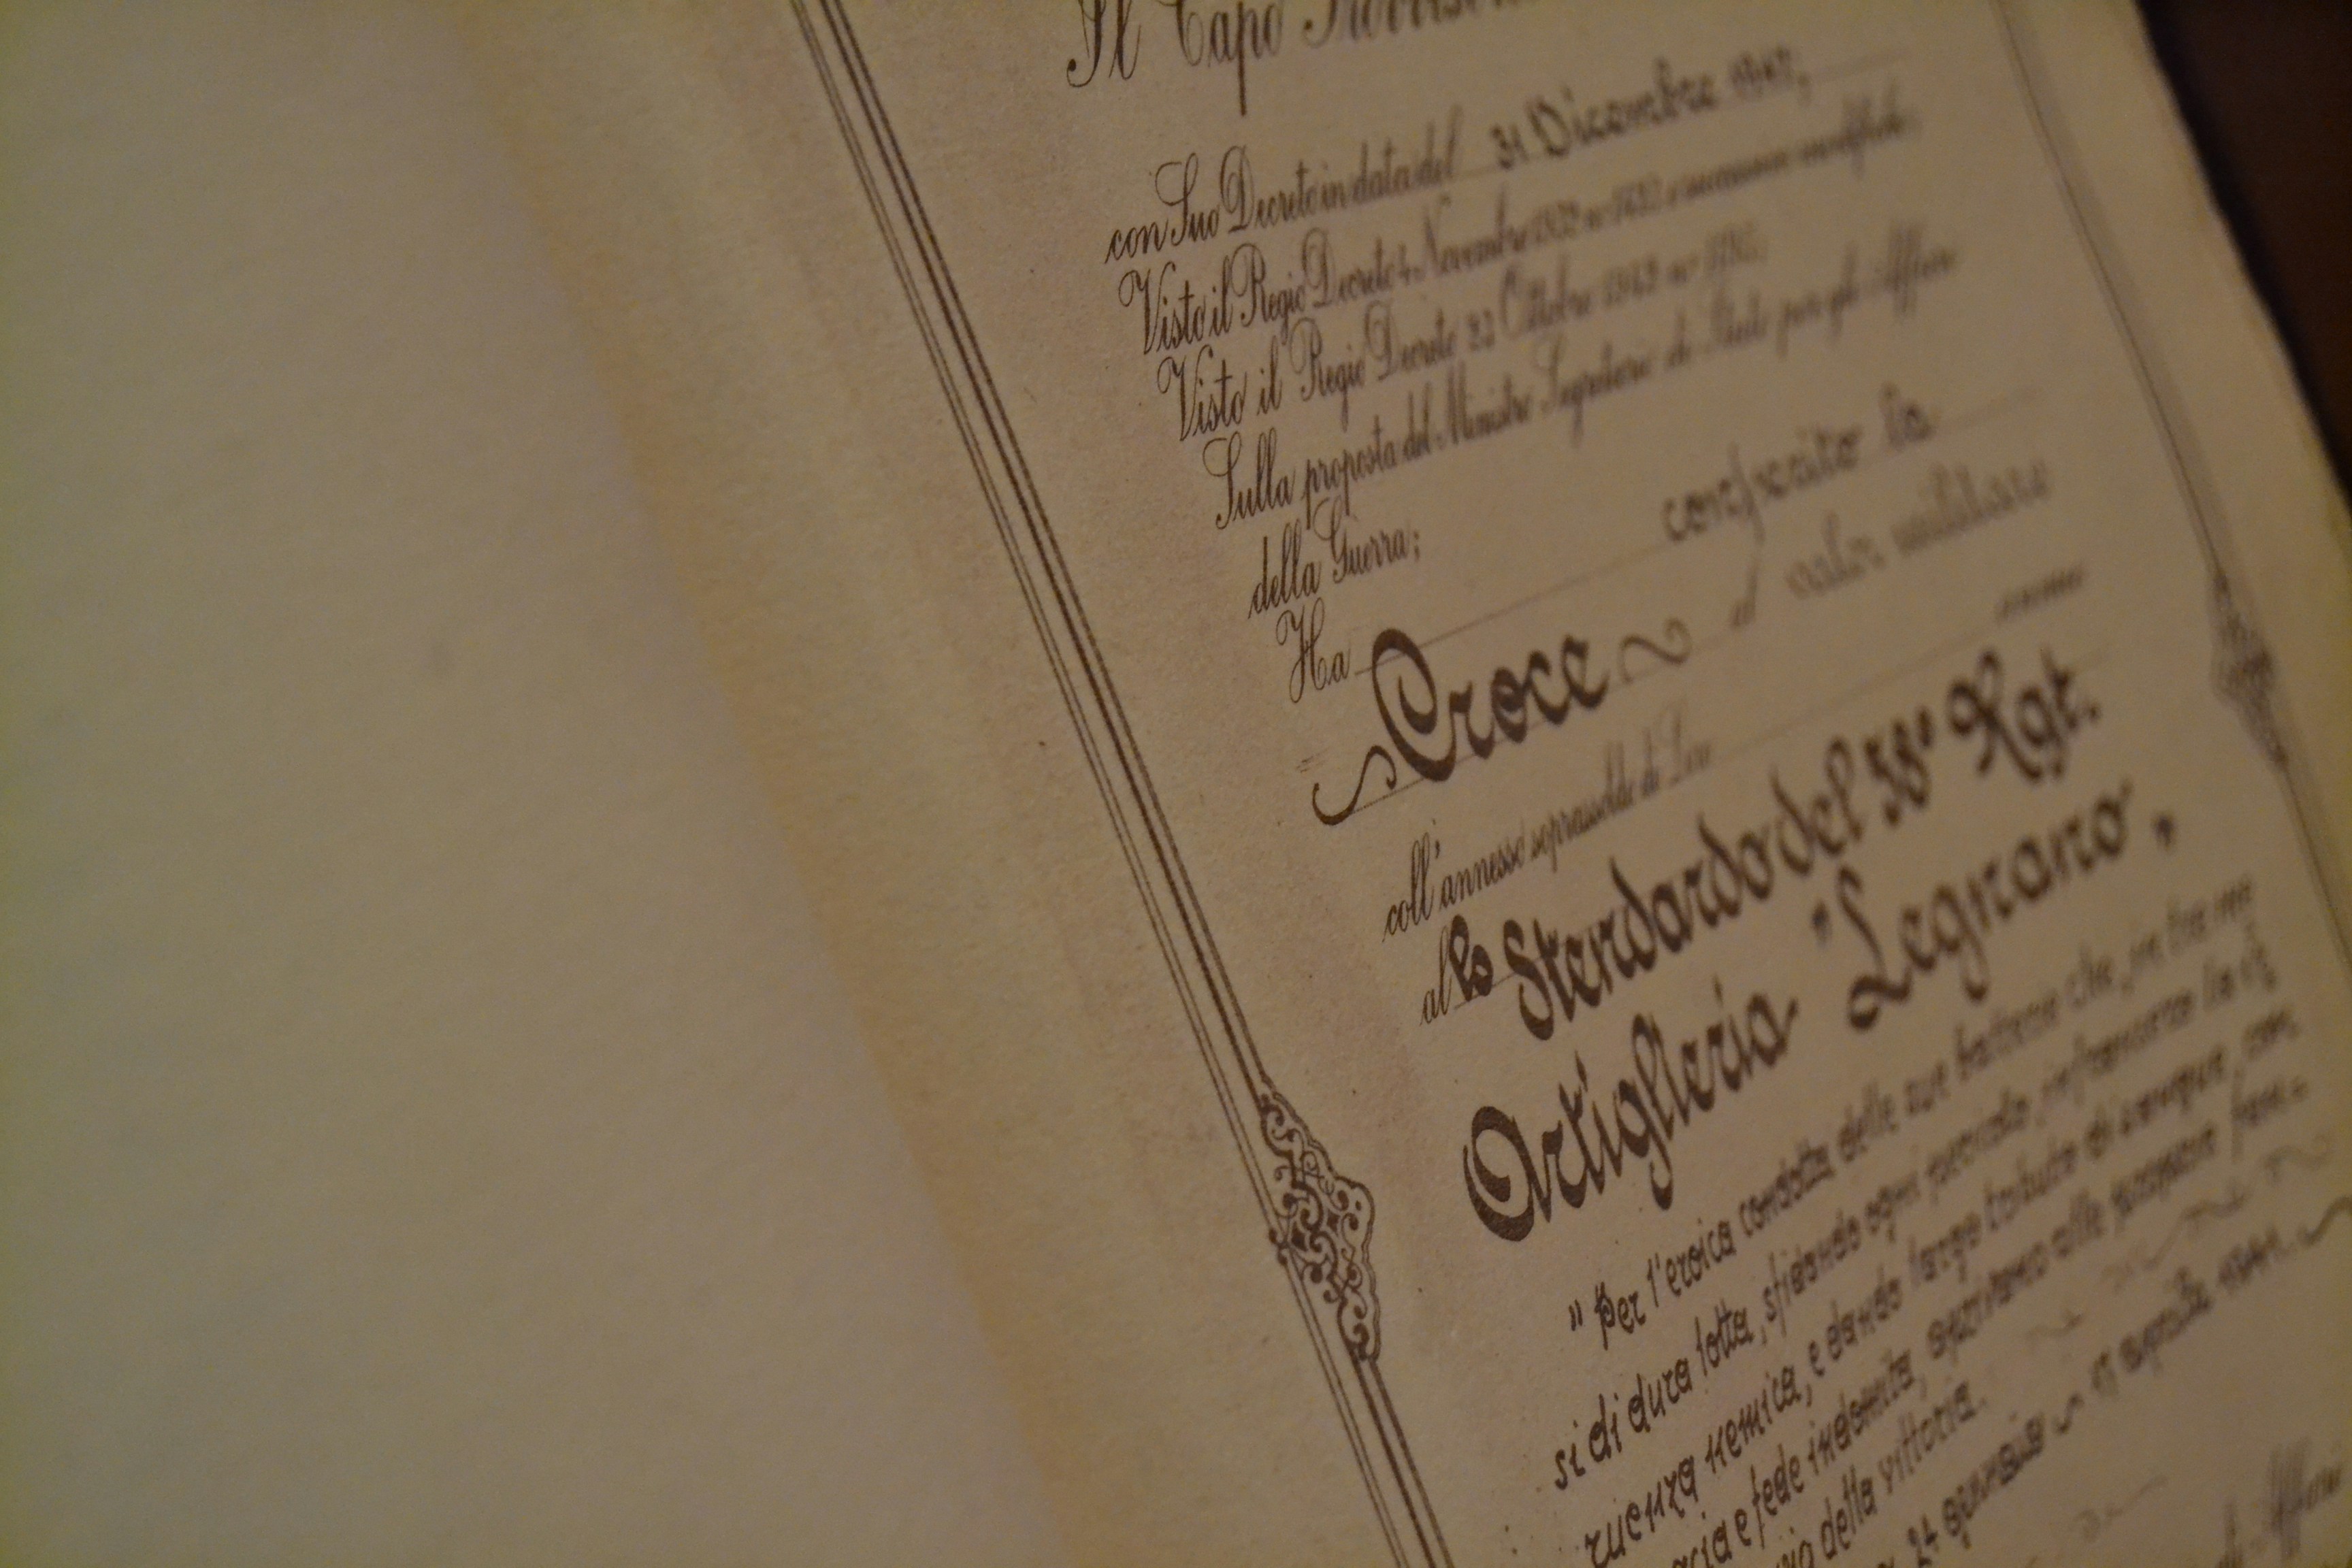 Il Capo Provviso
con Suo Decreto in data del 31 Dicembre 1947;
Visto il Regio Decreto 4 Novembre 1932 n° 1423 e successive modifiche;
Visto il Regio Decreto 23 Ottobre 1942 n° 1195;
Sulla proposta del Ministro Segretario di Stato per gli Affari
della Guerra;
Ha conferito la
Croce al valor militare
coll'annesso soprassoldo di Lire annue
allo Stendardo del 58° Rgt.
Artiglieria "Legnano"
"Per l'eroica condotta delle sue batterie che, in tre me
si di dura lotta, sfidando ogni pericolo,
ruenza nemica, e dando largo tributo di sangue, con
e fede indomita, aprivano alle proprie fan=
della vittoria.
24 gennaio ~ 17 aprile